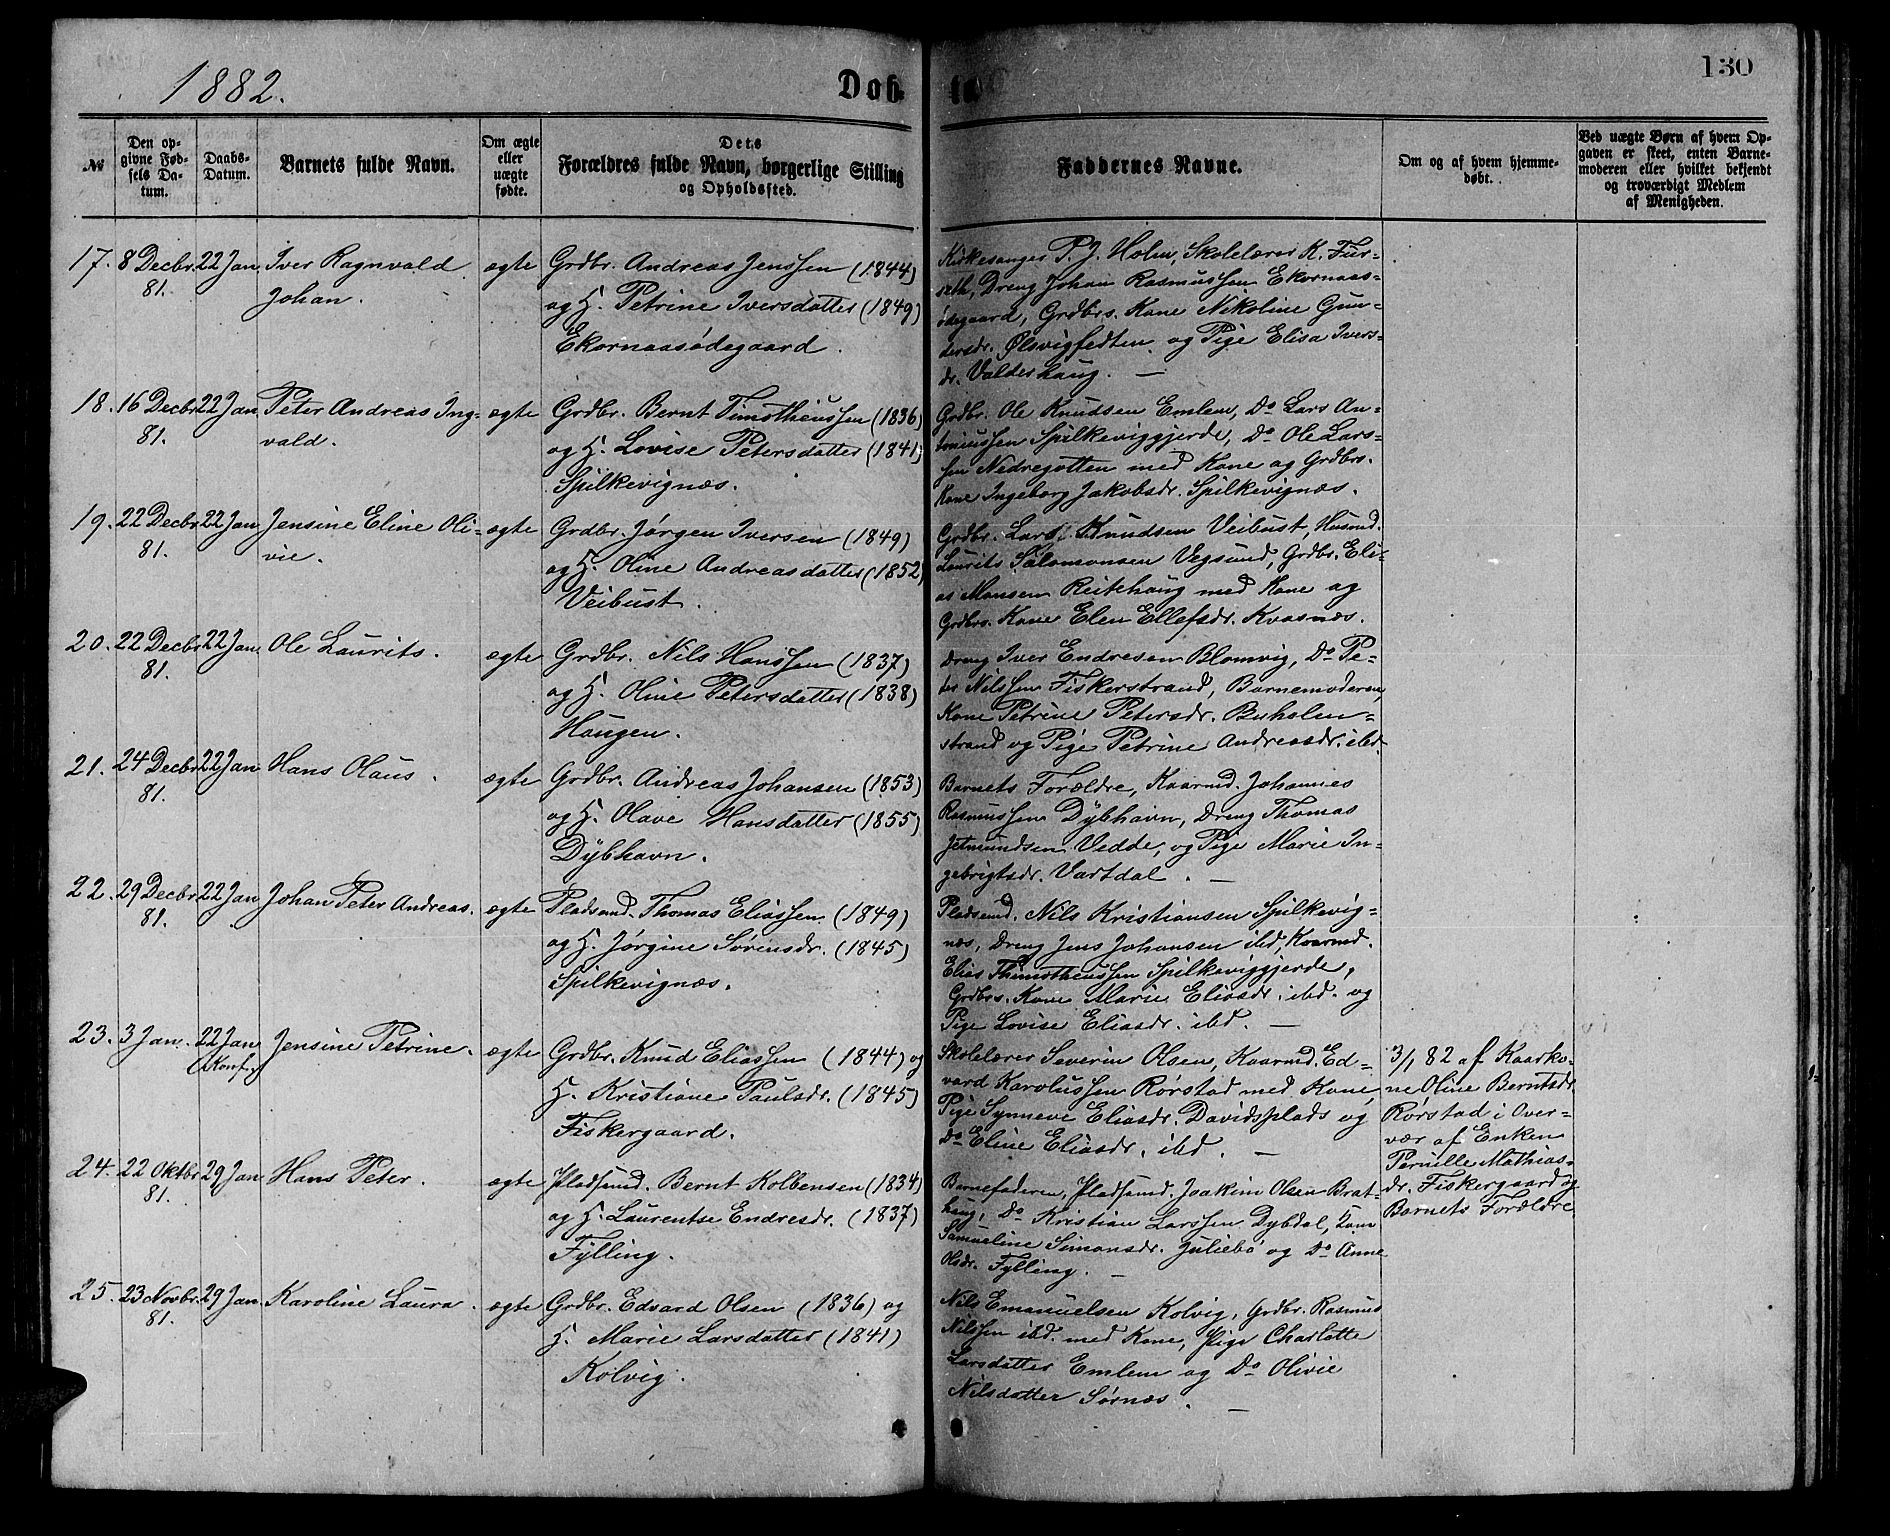 1882.
Døb-
te
130
№
Den op-
givne Fød-
sels Da-
tum.
Daabs-
Datum.
Barnets fulde Navn.
Om ægte
eller
uægte
fødte.
Dets
Forældres fulde Navn, borgerlige Stilling
og Opholdssted.
Faddernes Navne.
Om og af hvem hjemme-
døbt.
Ved uægte Børn af hvem Op-
gaven er skeet, enten Barne-
moderen eller hvilket bekjendt
og troværdigt Medlem
af Menigheden.
17. 8 Decbr. 22 Jan. Iver Ragnvald ægte Grdbr. Andreas Jenssen (1844)
81. Johan. og H. Petrine Iversdatter (1849)
Ekornaasødegaard.
Kirkesanger P. J. Holm, Skolelærer K. Fur-
seth, Dreng Johan Rasmussen Ekornaas-
ødegaard, Grdbrs. Kone Nikoline Gun-
dersdr. Ølsvigfedten og Pige Elisa Ivers-
dr. Valderhaug. —
18. 16 Decbr. 22 Jan. Peter Andreas Ing- ægte Grdbr. Bernt Timotheussen (1836)
81. vald. og H. Lovise Petersdatter (1841)
Spilkevignæs.
Grdbr. Ole Knudsen Emlem, Do Lars An-
toniussen Spilkeviggjerde, Do Ole Lars-
sen Nedregotten med Kone og Grdbrs.
Kone Ingeborg Jakobsdr. Spilkevignæs.
19. 22 Decbr. 22 Jan. Jensine Eline Oli- ægte Grdbr. Jørgen Iversen (1849)
81. vie. og H. Oline Andreasdatter (1852)
Veibust.
Grdbr. Lars Knudsen Veibust, Husmd.
Laurits Salomonsen Vegsund, Grdbr. Eli-
as Monsen Reitehaug med Kone og
Grdbrs. Kone Elen Ellefsdr. Kvasnæs.
20. 22 Decbr. 22 Jan. Ole Laurits. ægte Grdbr. Nils Hanssen (1837)
81. og H. Oline Petersdatter (1838)
Haugen.
Dreng Iver Endresen Blomvig, Do Pe-
ter Nilssen Fiskerstrand, Barnemoderen,
Kone Petrine Petersdr. Buholm-
strand og Pige Petrine Andreasdr. ibd.
21. 24 Decbr. 22 Jan. Hans Olaus. ægte Grdbr. Andreas Johansen (1853)
81. og H. Olave Hansdatter (1855)
Dybhavn.
Barnets Forældre, Kaarmd. Johannes
Rasmussen Dybhavn, Dreng Thomas
Jetmundsen Vedde, og Pige Marie In-
gebrigtsdr. Vartdal. —
22. 29 Decbr. 22 Jan. Johan Peter Andreas. ægte Pladsmd. Thomas Eliassen (1849)
81. og H. Jørgine Sørensdr. (1845)
Spilkevignæs.
Pladsmd. Nils Kristiansen Spilkevig-
næs, Dreng Jens Johansen ibd, Kaarmd.
Elias Thimotheussen Spilkeviggjerde,
Grdbrs. Kone Marie Eliasdr. ibd. og
Pige Lovise Eliasdr. ibd. —
23. 3 Jan. 22 Jan. Jensine Petrine. ægte Grdbr. Knud Eliassen (1844) og
(Konf.) H. Kristiane Paulsdr. (1845)
Fiskergaard.
Skolelærer Severin Olsen, Kaarmd. Ed-
vard Karolussen Rørstad med Kone,
Pige Synneve Eliasdr. Davidsplads og
Do Eline Eliasdr. ibd. —
3/1 82 af Kaarko-
ne Oline Berntsdr.
Rørstad i Over-
vær af Enken
Pernille Mathias-
dr. Fiskergaard og
Barnets Forældre.
24. 22 Oktbr. 29 Jan. Hans Peter. ægte Pladsmd. Bernt Kolbensen (1834)
81. og H. Laurentse Endresdr. (1837)
Fylling.
Barnefaderen, Pladsmd. Joakim Olsen Brat-
haug, Do Kristian Larssen Dybdal, Kone
Samueline Simonsdr. Juliebø og Do Anne
Olsdr. Fylling. —
25. 23 Novbr. 29 Jan. Karoline Laura. ægte Grdbr. Edvard Olsen (1836) og
81. H. Marie Larsdatter (1841)
Kolvig.
Nils Emanuelsen Kolvig, Grdbr. Rasmus
Nilssen ibd. med Kone, Pige Charlotte
Larsdatter Emlem og Do Olivie
Nilsdatter Sørnæs. —